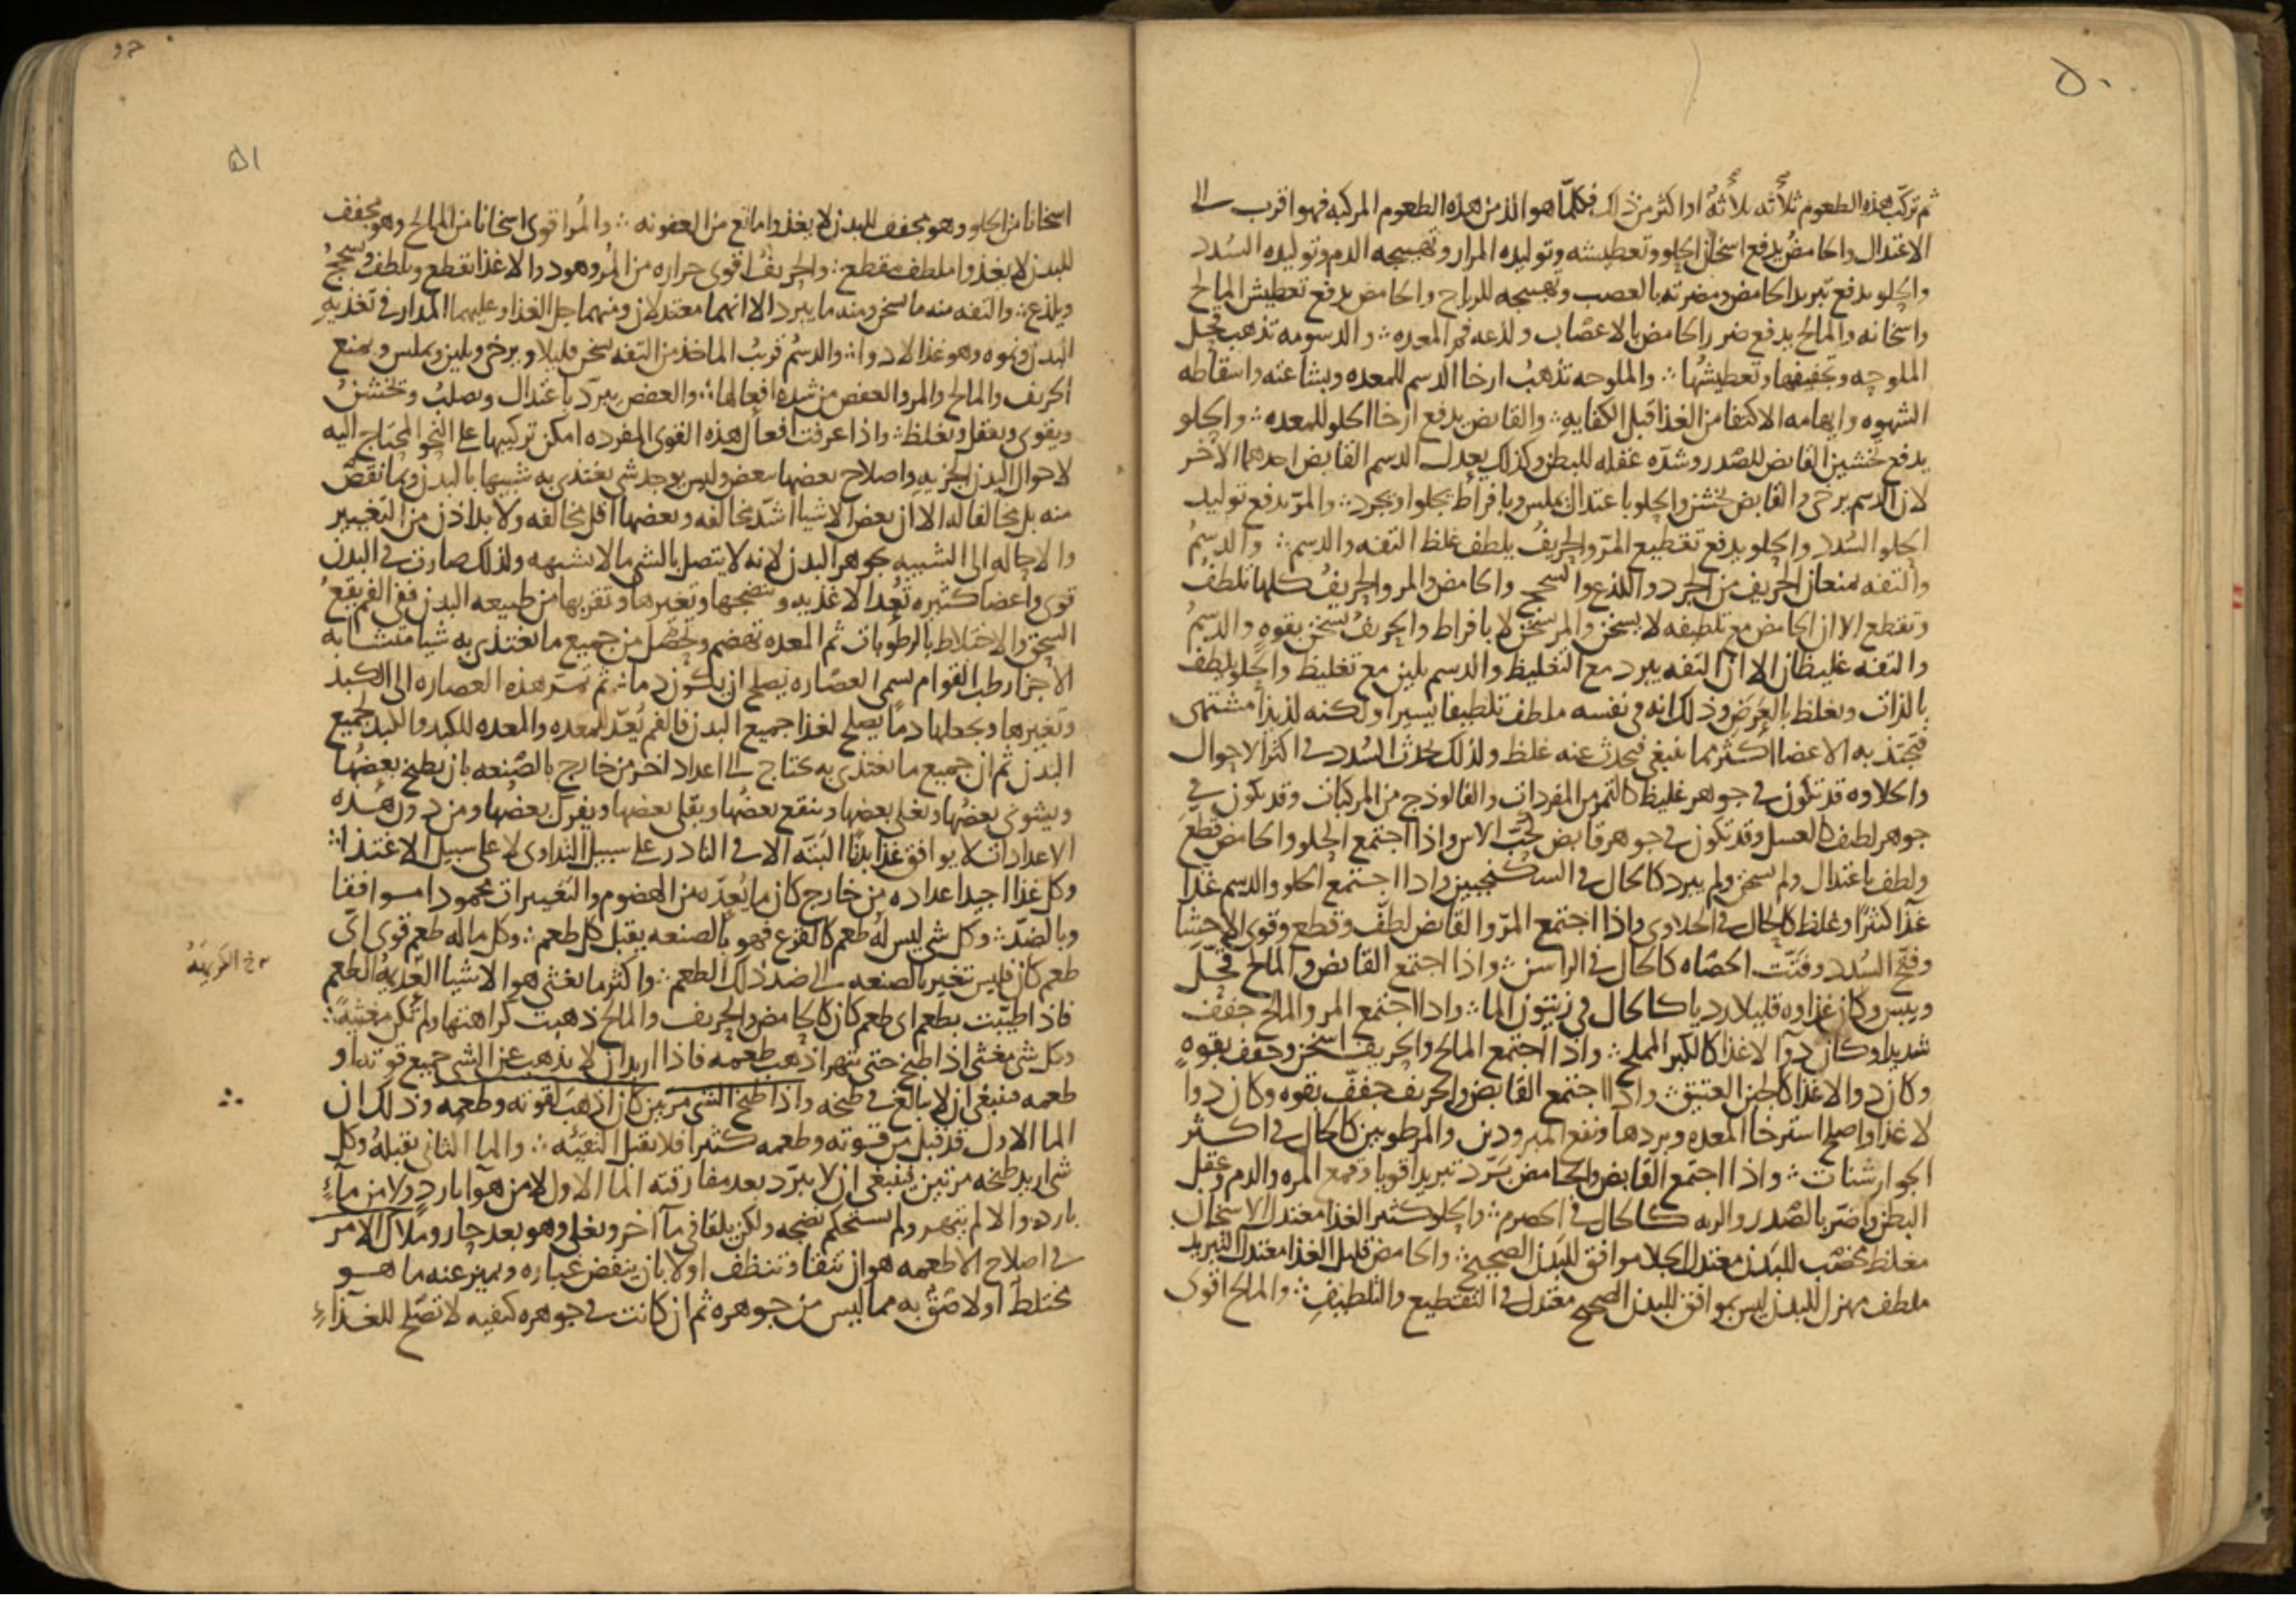 ٥٠
ثم تركب هذه الطعوم ثلاثه ثلاثه او اكثر من ذلك فكلما هو الذ من هذه الطعوم المركبه فهو اقرب الى
الاعتدال والحامض يدفع اسخان الحلو وتعطيشه وتوليده المرار وتهييجه الدم وتوليده السدد
والحلو يدفع تبريد الحامض ومضرته بالعصب وتهييجه للرياح والحامض يدفع تعطيش المالح
واسخانه والمالح يدفع ضرر الحامض بالاعصاب ولذعه فم المعده والدسومه تذهب
الملوحه وتجفيفها وتعطيشها والملوحه تذهب ارخا الدسم للمعده وبشاعته واسقاطه
الشهوه وايهامه الاكتفا من الغذا قبل الكفايه والقابض يدفع ارخا الحلو للمعده والحلو
يدفع تخشين القابض للصدر وشده عقله للبطن وكذلك يعدل الدسم القابض احدهما الاخر
لان الدسم يرخي والقابض يخشن والحلو باعتدال يملس وبافراط يجلوا ويجرد والمر يدفع توليد
الحلو السدد والحلو يدفع تقطيع المر والحريف يلطف غلظ التفه والدسم والدسم
والتفه يمنعان الحريف من الجرد واللذع والسحج والحامض والمر والحريف كلها تلطف
وتقطع الا ان الحامض مع تلطيفه لا يسخن والمر يسخن لا بافراط والحريف يسخن بقوه والدسم
والتفه غليظان الا ان التفه يبرد مع التغليظ والدسم يلين مع تغليظ والحلو يلطف
بالذات ويغلظ بالعرض وذلك انه في نفسه ملطف تلطيفا يسيرا ولكنه لذيذا مشتهى
فتجتذبه الاعضا اكثر مما ينبغي فيحدث عنه غلظ ولذلك يحدث السدد في اكثر الاحوال
والحلاوه قد تكون في جوهر غليظ كالتمر من المفردات والفالوذج من المركبات وقد تكون في
جوهر لطيف كالعسل وقد تكون في جوهر قابض كحب الاس واذا اجتمع الحلو والحامض قطع
ولطف باعتدال ولم يسخن ولم يبرد كالحال في السكنجبين واذا اجتمع الحلو والدسم غذا
غذا كثيرا وغلظ كالحال في الحلاوى واذا اجتمع المر والقابض لطف وقطع وقوى الاحشا
وفتح السدد وفتت الحصاه كالحال في الراسن واذا اجتمع القابض والمالح
ويبس وكان غذاوه قليلا رديا كالحال في زيتون الما واذا اجتمع المر والمالح جفف
شديدا وكان دوآ لا غذا كالكبر المملح واذا اجتمع المالح والحريف اسخن وجفف بقوه
وكان دوا لا غذا كالجبن العتيق واذا اجتمع القابض والحريف جفف بقوه وكان دوا
لا غذا واصلح استرخا المعده وبردها ونفع المبرودين والمرطوبين كالحال في اكثر
الجوارشنات واذا اجتمع القابض والحامض برد تبريدا قويا وقمع المره والدم وعقل
البطن واضر بالصدر والريه كالحال في الحصرم والحلو كثير الغذا معتدل الاسخان
مغلظ مخصب للبدن معتدل الجلا موافق للبدن الصحيح والحامض قليل الغذا معتدل التبريد
ملطف مهزل للبدن ليس بموافق للبدن الصحيح معتدل في التقطيع والتلطيف والمالح اقوى
٥١
اسخانا من الحلو وهو مجفف للبدن لا يغذوا مانع من العفونه والمر اقوى اسخانا من المالح وهو مجفف
للبدن لا يغذوا ملطف مقطع والحريف اقوى حراره من المر وهو دوا لا غذا يقطع ويلطف ويسحج
ويلذع والتفه منه ما يسخن ومنه ما يبرد الا انهما معتدلان ومنهما جل الغذا وعليهما المدار في تغذيه
البدن ونموه وهو غذا لا دوا والدسم قريب الماخذ من التفه يسخن قليلا ويرخي ويلين ويملس ويمنع
الحريف والمالح والمر والعفص من شده افعالها والعفص يبرد باعتدال ويصلب ويخشن
ويقوي ويعقل ويغلظ واذا عرفت افعال هذه القوى المفرده امكن تركيبها على النحو المحتاج اليه
لاحوال البدن الجزيه واصلاح بعضها ببعض وليس يوجد شي يغتذي به شبيها بالبدن وبما نقص
منه بل مخالفا له الا ان بعض الاشيا اشد مخالفه وبعضها اقل مخالفه ولا بد اذن من التغيير
والاحاله الى الشبيه بجوهر البدن لانه لا يتصل بالشي ما لا يشبهه ولذلك صارت في البدن
قوى واعضا كثيره تعد الاغذيه وتنضجها وتغيرها وتقربها من طبيعه البدن ففي الفم يقع
السحق والاختلاط بالرطوبات ثم المعده تهضم وتحصل من جميع ما يغتذي به شيا متشابه
الاجزا رطب القوام يسمى العصاره يصلح ان يكون دما ثم تمر هذه العصاره الى الكبد
وتغيرها وتجعلها دما يصلح لغذا جميع البدن فالفم يعد للمعده والمعده للكبد والكبد لجميع
البدن ثم ان جميع ما يغتذي به يحتاج الى اعداد اخر من خارج بالصنعه بان يطبخ بعضها
ويشوى بعضها ويغلى بعضها وينقع بعضها ويقلى بعضها ويفرك بعضها ومن دون هذه
الاعدادات لا يوافق غذا بدنا البته الا في النادر على سبيل التداوي لا على سبيل الاغتذا
وكل غذا اجيد اعداده من خارج كان ما يعده من الهضوم والتغييرات محمودا موافقا
وبالضد وكل شي ليس له طعم كالقرع فهو بالصنعه يقبل كل طعم وكل ما له طعم قوي اي
طعم كان فليس تغير بالصنعه الى ضد ذلك الطعم واكثر ما يغثي هو الاشيا العديمه الطعم
نخ الكريهة
فاذا طيبت بطعم اي طعم كان كالحامض والحريف والمالح ذهبت كراهتها ولم تكن مغثيه
وكل شي مغثي اذا طبخ حتى يتهرا ذهب طعمه فاذا اريد ان لا يذهب عن الشي جميع قوته او
طعمه فينبغي ان لا يبالغ في طبخه واذا طبخ الشي مرتين كان اذهب لقوته وطعمه وذلك ان
الما الاول قد قبل من قوته وطعمه كثيرا فلا يقبل البقيه والما الثاني يقبله وكل
شي اريد طبخه مرتين فينبغي ان لا يبرد بعد مفارقته الما الاول لا من هوآ بارد ولا من مآء
بارد والا لم يتهر ولم يستحكم نضجه ولكن يلقا في مآ آخر ويغلى وهو بعد حار وملاك الامر
في اصلاح الاطعمه هو ان تنقا وتنظف اولا بان ينفض غباره ويميز عنه ما هو
مختلط او لاصق به مما ليس من جوهره ثم ان كانت في جوهره كيفيه لا تصلح للغذآء